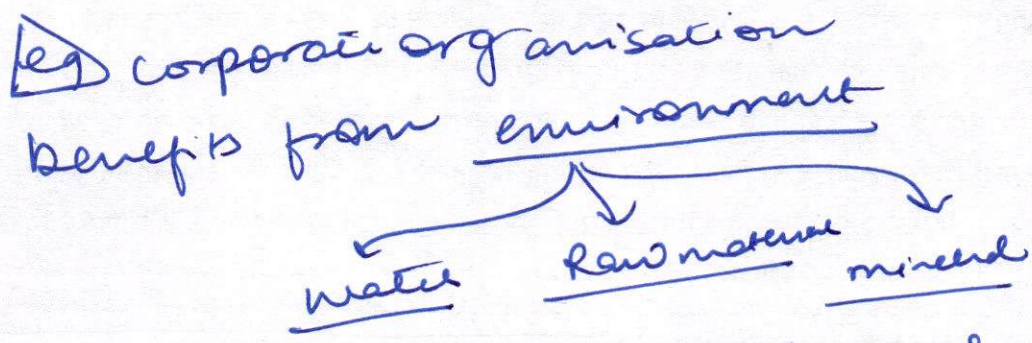 eg corporate organisation
benefits from environment
water Raw material mineral